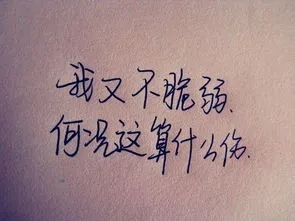 我又不脆弱.
何况这算什么伤.